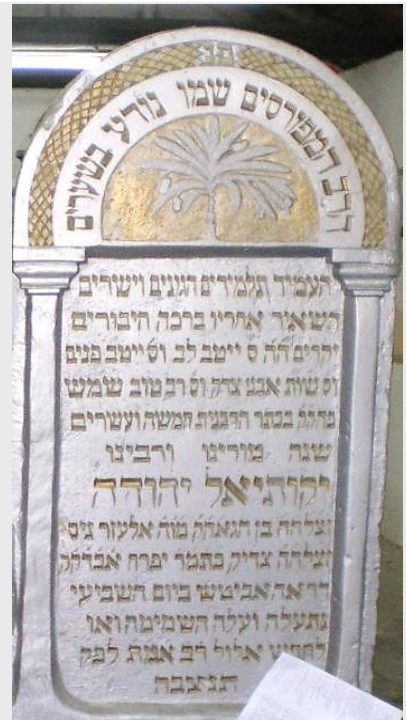 פנ
הרב המפורסים שמו נודע בשערים
העמיד תלמידים הגונים וישרים
השאיר אחריו ברכה חיבורים
יקרים ה״ה ס׳ ייטב לב וס׳ ייטב פנים
וס׳ אבני צדק וס׳ רב טוב שמש
בכתר הרבנות חמשה ועשרים
שנה מורינו ורבינו
יקותיאל יהודה
זצללה״ה בן הגאה״ק מו״ה אלעזר ניסן
זצללה״ה צדיק כתמר יפרח אבדק״ק
ביום השביעי
נתעלה ועלה השמימה
אלול רב אמת לפק
תנצבה